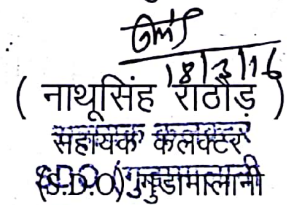 18/3/16
( नाथूसिंह राठौड़ )
सहायक कलक्टर
(S.D.O.) गुडामालानी